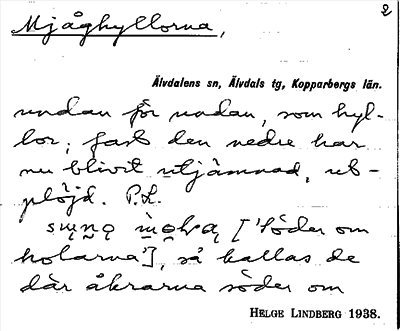 2
Mjåghyllorna,
Älvdalens sn, Älvdals tg, Kopparbergs län.
undan för undan, som hyl-
lor; fast den nedre har
nu blivit utjämnad, ut-
plöjd. P.L.
['Söder om
holarna'], så kallas de
där åkrarna söder om
HELGE LINDBERG 1938.